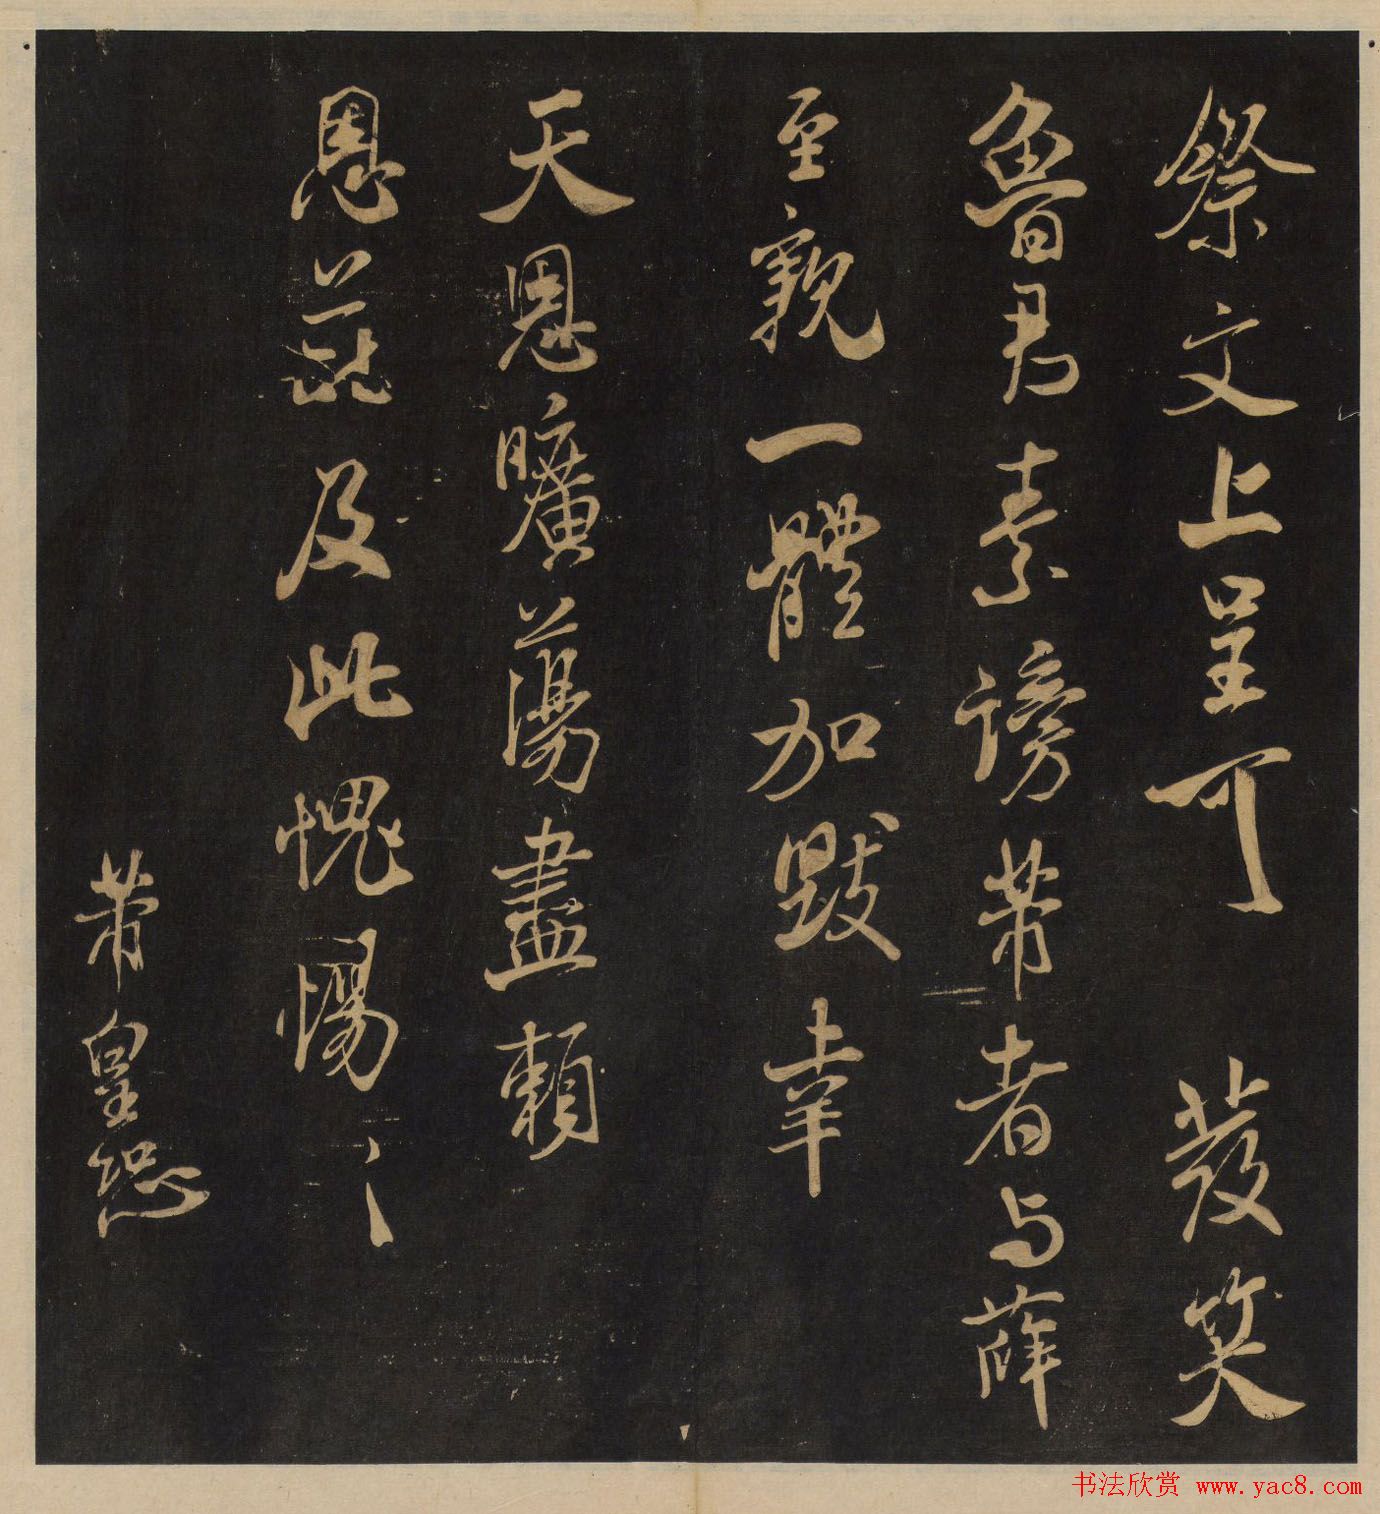 祭文上呈可 發笑
魯君素謗芾者与薛
至親一體加毀幸
天恩曠蕩盡賴
恩茲及此愧惕〻
芾皇恐
书法欣赏 www.yac8.com